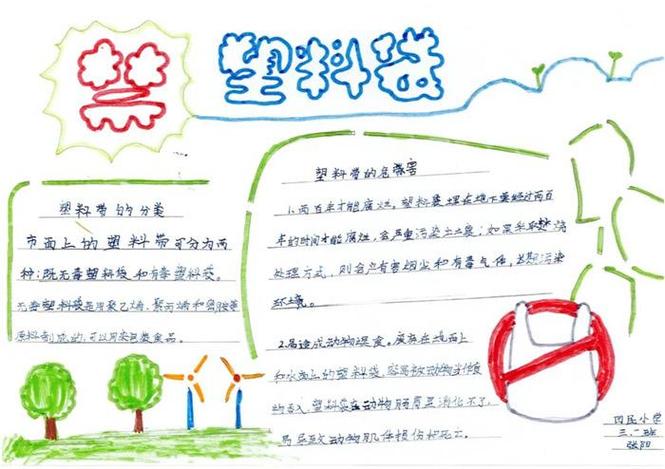 禁 塑料袋
塑料带的分类
市面上的塑料带可分为两
种：既无毒塑料袋和有毒塑料袋。
无毒塑料袋是用聚乙烯、聚丙烯和密胺等
原料制成的，可以用来包装食品。
塑料带的危害
1.两百年才能腐烂。塑料袋埋在地下要经过两百
年的时间才能腐烂，会严重污染土壤；如果采取焚烧
处理方式，则会产有害烟尘和有毒气体，长期污染
环境。
2.易造成动物误食。废弃在地面上
和水面上的塑料袋，容易被动物当作食
物吞入，塑料袋在动物肠胃里消化不了，
易导致动物肌体损伤和死亡。
四民小学
三.二班
张阳